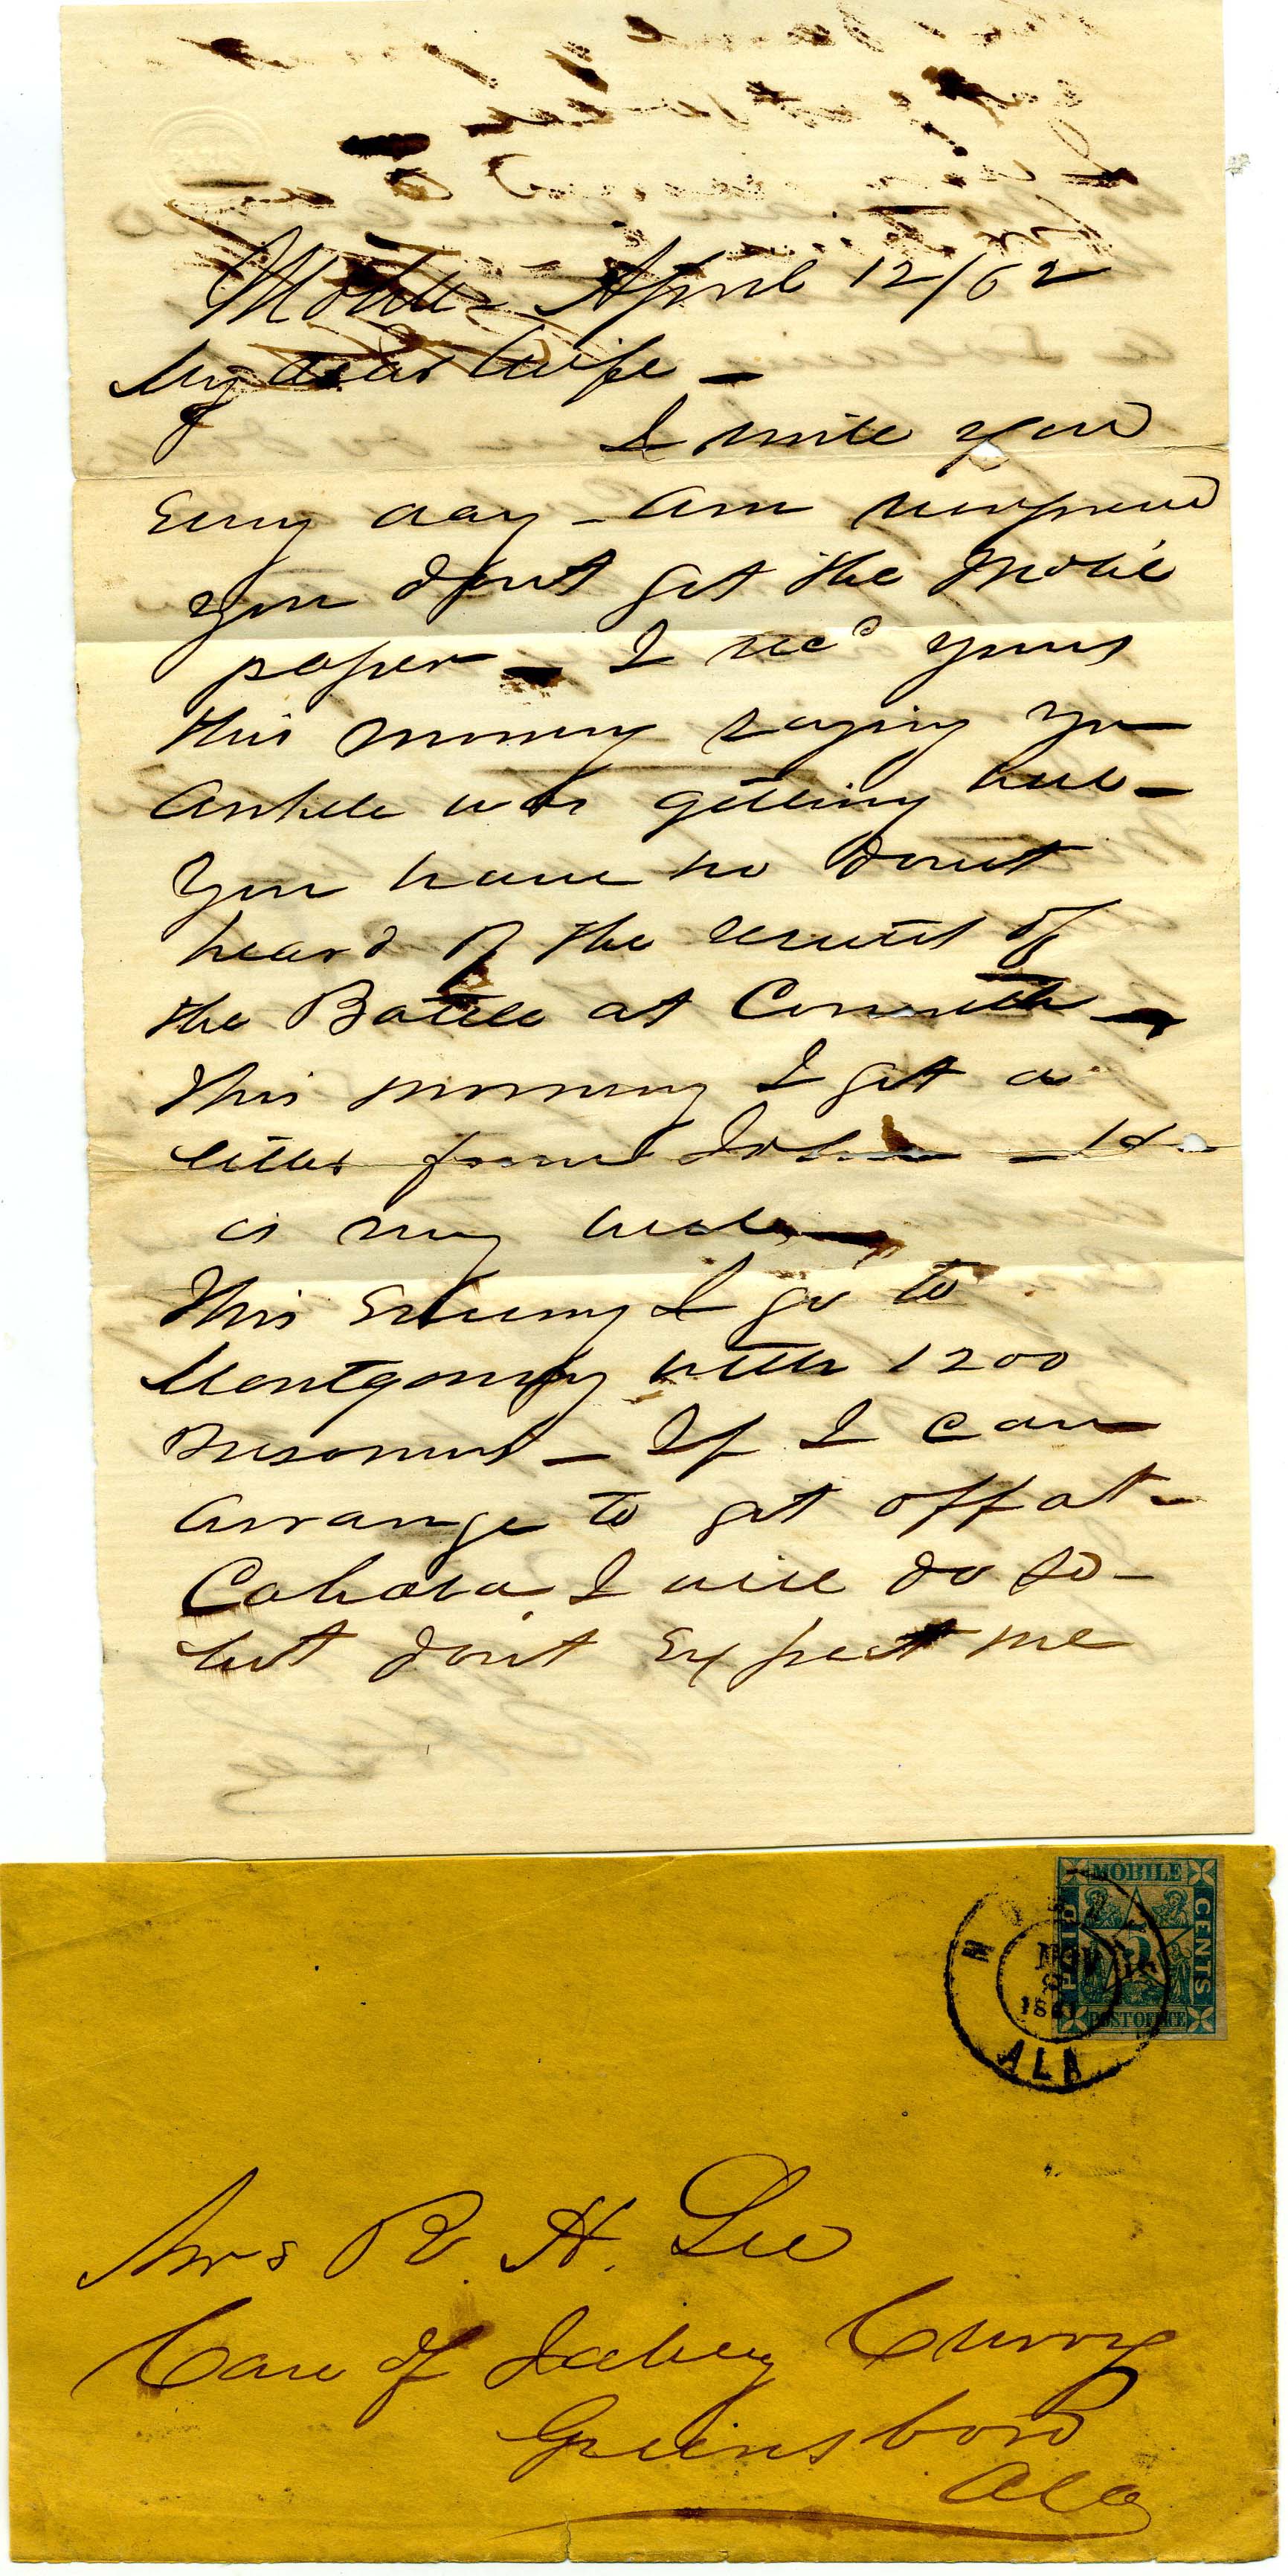 Mobile April 12/62
My dear Wife -
I write you
Every day - am surprised
you dont get the Mobile
paper - I recd yours
this morning saying yr
Ankle was getting well -
You have no doubt
heard of the results of
the Battle at Corinth -
This morning I get a
letter from John - He
is very well -
This Evening I go to
Montgomery with 1200
Prisoners - If I can
arrange to get off at -
Cahaba I will do so -
but don't Expect me
MOBILE
PAID
5
CENTS
POST OFFICE
MOBILE
NOV
1861
ALA
Mrs R. H. Lee
Care of Jabey Curry
Greensboro
Ala